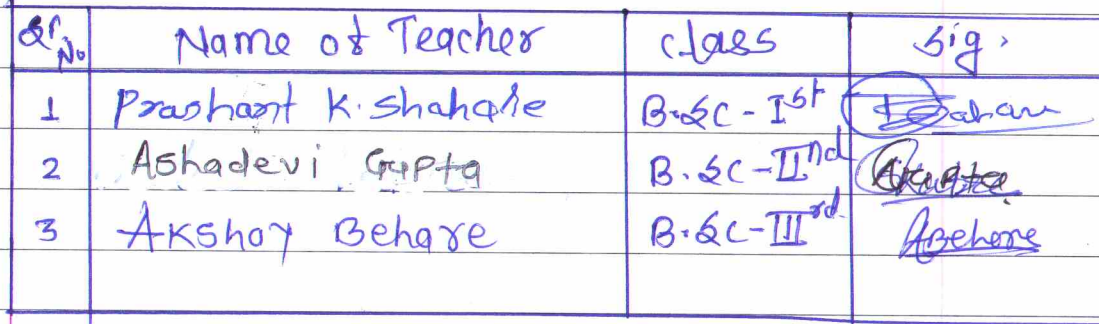 Sr. No. Name of Teacher Class Sig.
1 Prashant K. Shahare B.Sc - Ist
2 Ashadevi Gupta B.Sc - IInd AGupta
3 Akshay Behare B.Sc - IIIrd ABehare